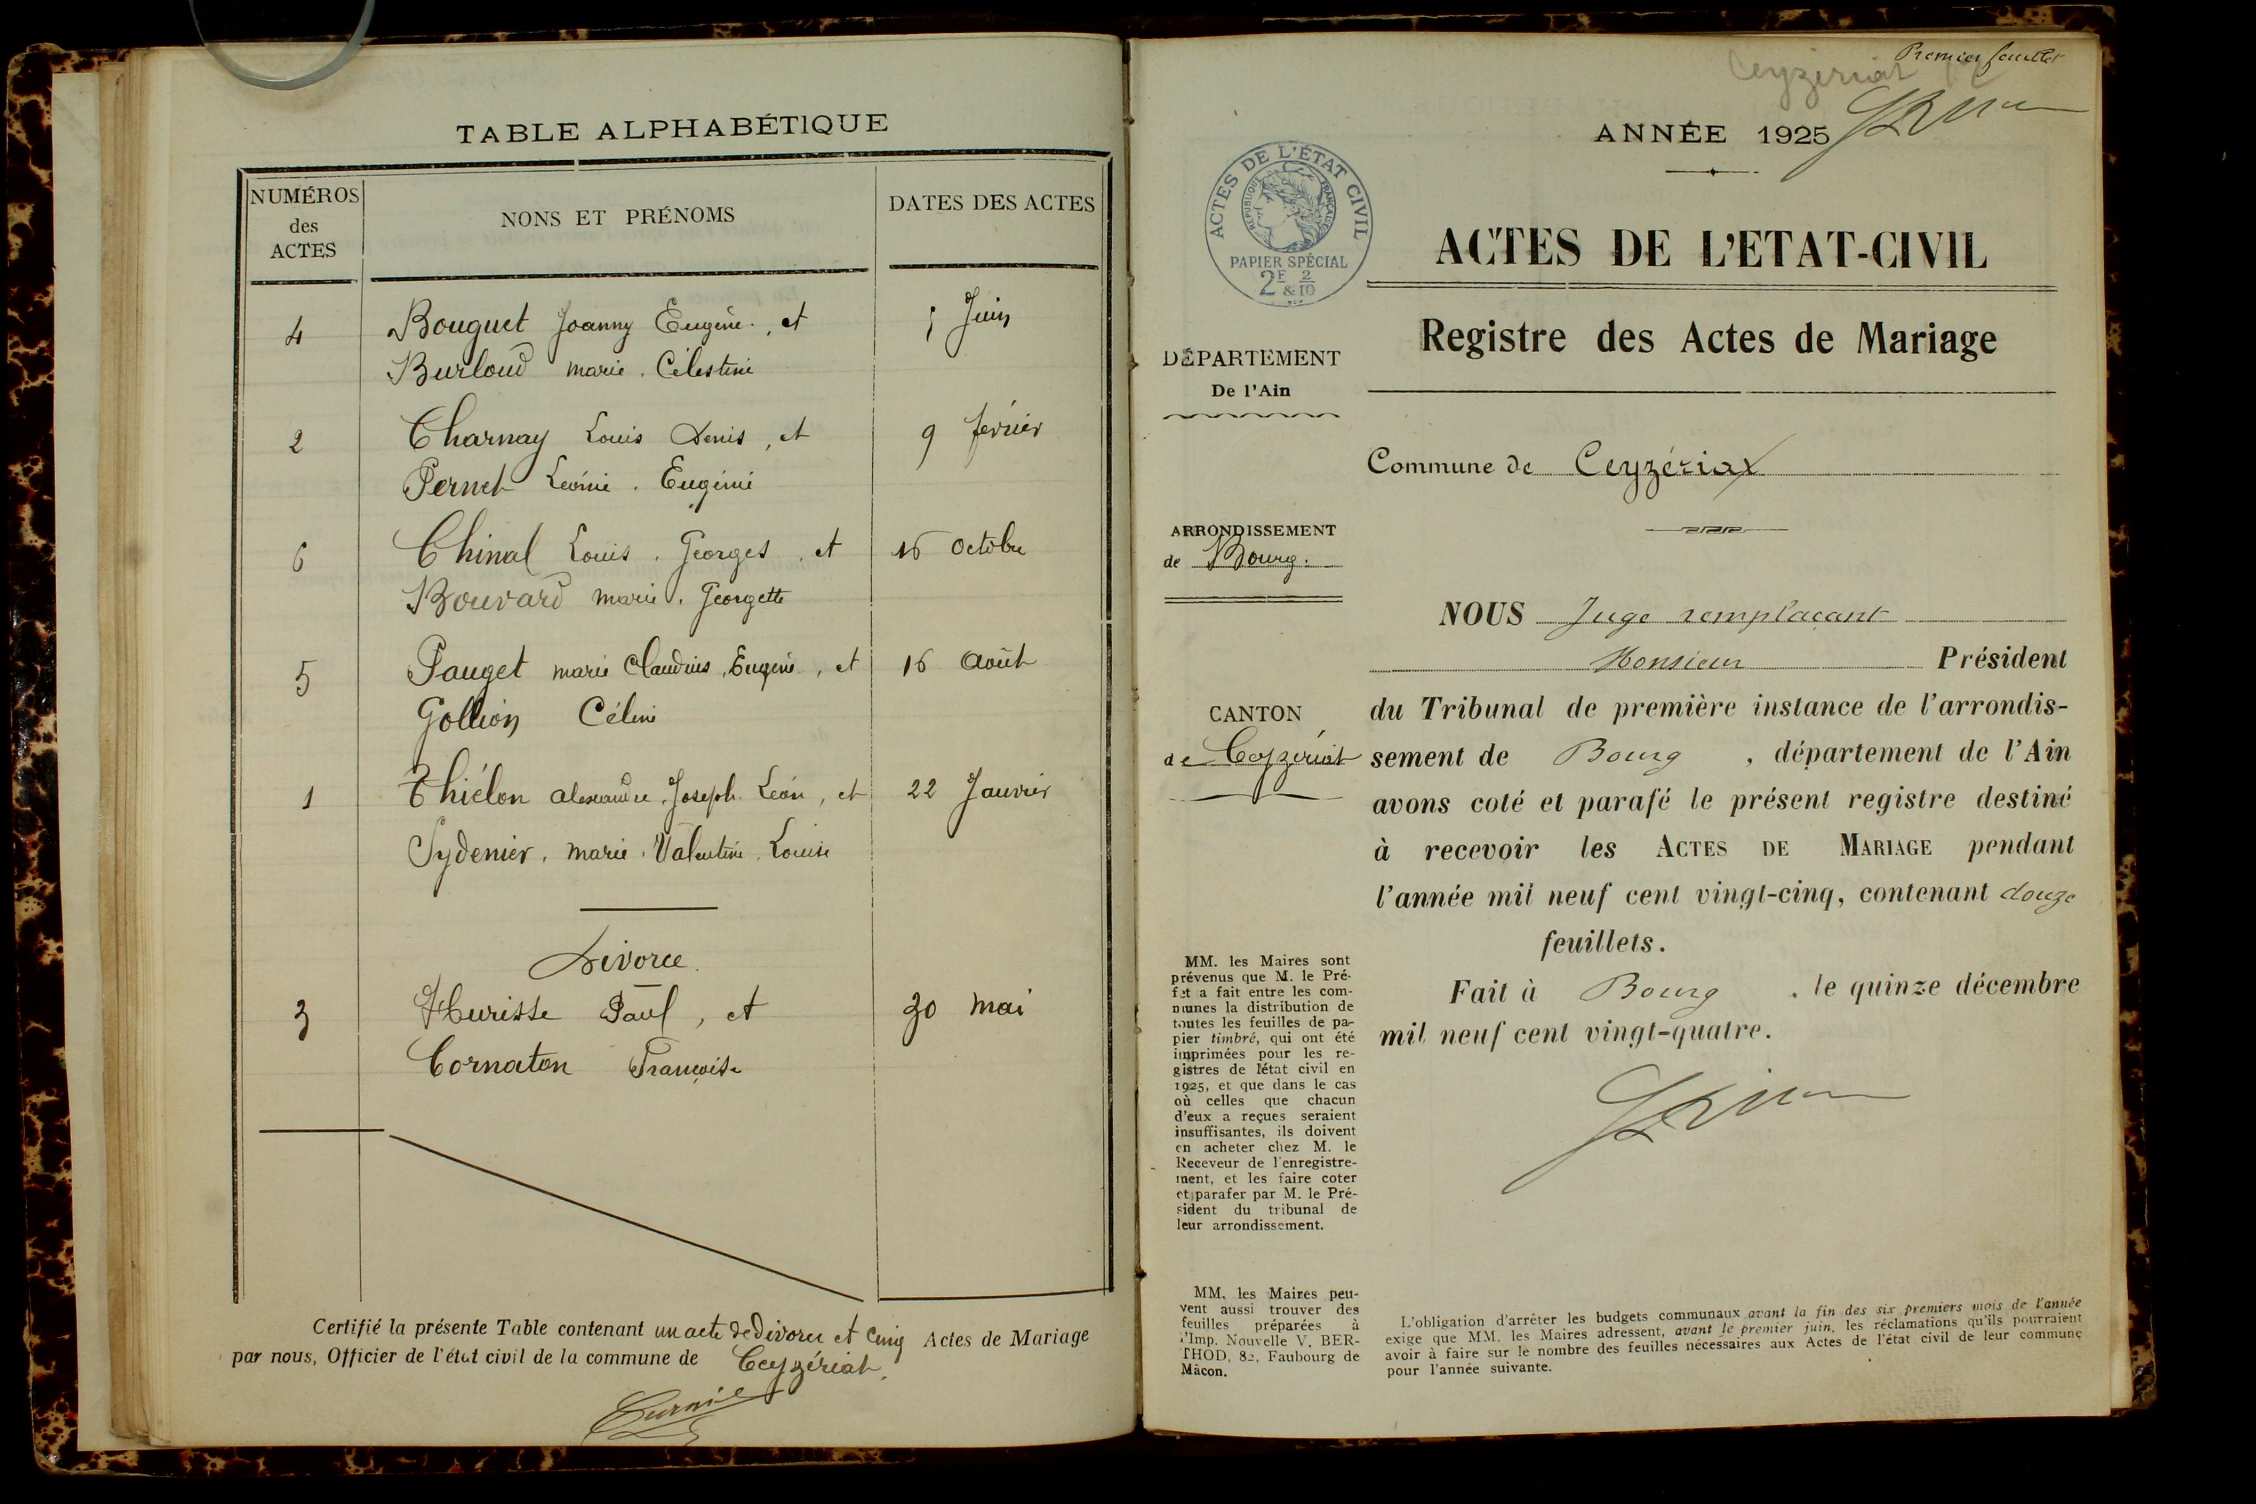 TABLE ALPHABÉTIQUE
NUMÉROS
des
ACTES
NONS ET PRÉNOMS
DATES DES ACTES
4 Bouguet Joanny Eugène, et Juin
Burloud marie. Célestine
2 Charnay Louis Denis, et 9 février
Pernet Léonie. Eugénie
6 Chinal Louis. Georges, et 16 Octobre
Bouvard marie. Georgette
5 Pauget marie Claudius, Eugène, et 16 Août
Gollion Céline
1 Thiélon alexandre, Joseph Léon, et 22 Janvier
Sydenier, marie. Valentine. Louise
Divorce
3 Hurisse Paul, et 30 mai
Cornaton Françoise
Certifié la présente Table contenant un acte de divorce et cinq Actes de Mariage
par nous, Officier de l'état civil de la commune de Ceyzériat.
Ceyzeriat
Premier feuillet
ANNÉE 1925
ACTES DE L'ÉTAT CIVIL
RÉPUBLIQUE FRANÇAISE
PAPIER SPÉCIAL
2F & 2/10
ACTES DE L'ETAT-CIVIL
Registre des Actes de Mariage
DÉPARTEMENT
De l'Ain
Commune de Ceyzériat
ARRONDISSEMENT
de Bourg.
NOUS Juge remplaçant
Monsieur Président
du Tribunal de première instance de l'arrondis-
sement de Bourg, département de l'Ain
avons coté et parafé le présent registre destiné
à recevoir les ACTES DE MARIAGE pendant
l'année mil neuf cent vingt-cinq, contenant douze
feuillets.
Fait à Bourg. le quinze décembre
mil neuf cent vingt-quatre.
CANTON
de Ceyzériat
MM. les Maires sont
prévenus que M. le Pré-
fet a fait entre les com-
munes la distribution de
toutes les feuilles de pa-
pier timbré, qui ont été
imprimées pour les re-
gistres de l'état civil en
1925, et que dans le cas
où celles que chacun
d'eux a reçues seraient
insuffisantes, ils doivent
en acheter chez M. le
Receveur de l'enregistre-
ment, et les faire coter
et parafer par M. le Pré-
sident du tribunal de
leur arrondissement.
MM. les Maires peu-
vent aussi trouver des
feuilles préparées à
l'Imp. Nouvelle V. BER-
THOD, 82, Faubourg de
Mâcon.
L'obligation d'arrêter les budgets communaux avant la fin des six premiers mois de l'année
exige que MM. les Maires adressent, avant le premier juin, les réclamations qu'ils pourraient
avoir à faire sur le nombre des feuilles nécessaires aux Actes de l'état civil de leur commune
pour l'année suivante.